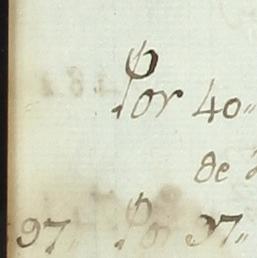 Por 40,,
de
97,, Por 97,,